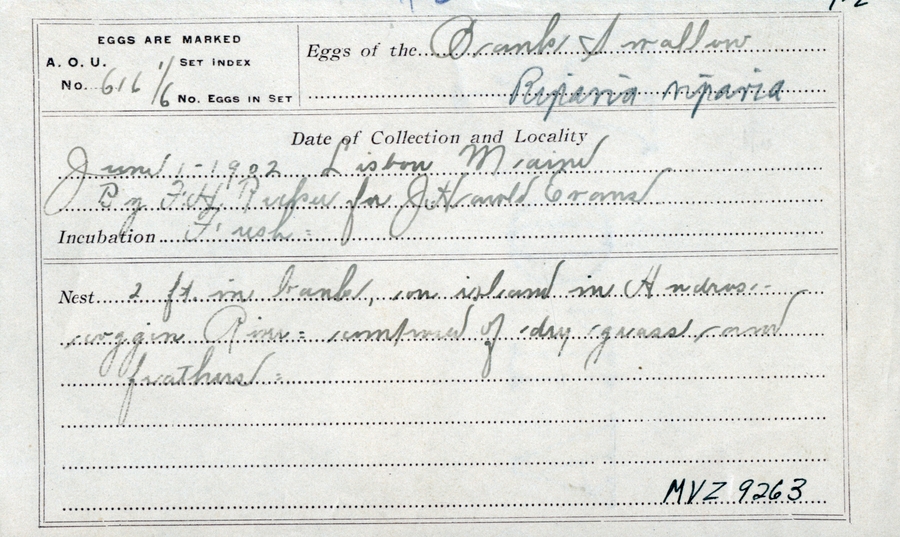 EGGS ARE MARKED
A. O. U. No. 616 1/6 SET INDEX
No. EGGS IN SET
Eggs of the Bank Swallow
Riparia riparia
Date of Collection and Locality
June 1-1902 Lisbon Maine
By F.H. for J. Harold Evans
Incubation Fresh =
Nest 2 ft in bank, on island in Andros-
coggin River = composed of dry grass and
feathers =
MVZ 9263